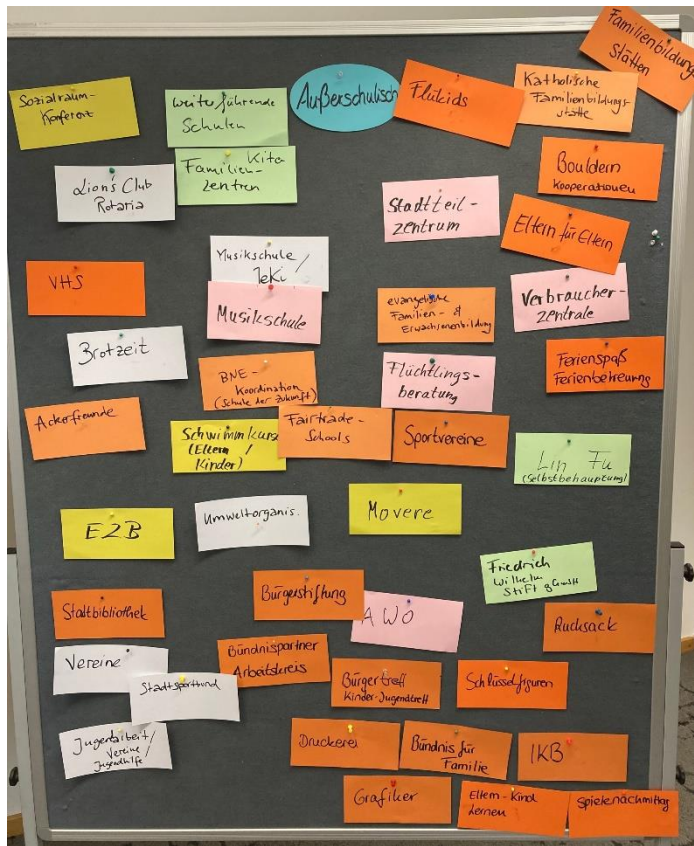 Familienbildung
Stätten
Sozialraum-
Konferenz
weiterführende
Schulen
Außerschulisch
Flükids
Katholische
Familienbildungs-
stätte
Lion's Club
Rotaria
Familien-
Kita
zentren
Bouldern
Kooperationen
Stadtteil-
zentrum
Eltern für Eltern
VHS
Musikschule /
JeKi
Musikschule
evangelische
Familien- &
Erwachsenenbildung
Verbraucher-
zentrale
Brotzeit
BNE-
Koordination
(Schule der Zukunft)
Flüchtlings-
beratung
Ferienspaß
Ferienbetreuung
Ackerfreunde
Schwimmkurse
(Eltern /
Kinder)
Fairtrade-
Schools
Sportvereine
Lin Fu
(Selbstbehauptung)
EZB
Umweltorganis.
Movere
Friedrich
Wilhelm
Stift gGmbH
Stadtbibliothek
Bürgerstiftung
AWO
Rucksack
Vereine
Stadtsportbund
Bündnispartner
Arbeitskreis
Bürgertreff
Kinder-Jugendtreff
Schlüsselfiguren
Jugendarbeit /
Vereine /
Jugendhilfe
Druckerei
Bündnis für
Familie
IKB
Grafiker
Eltern-Kind
Lernen
Spielenachmittag